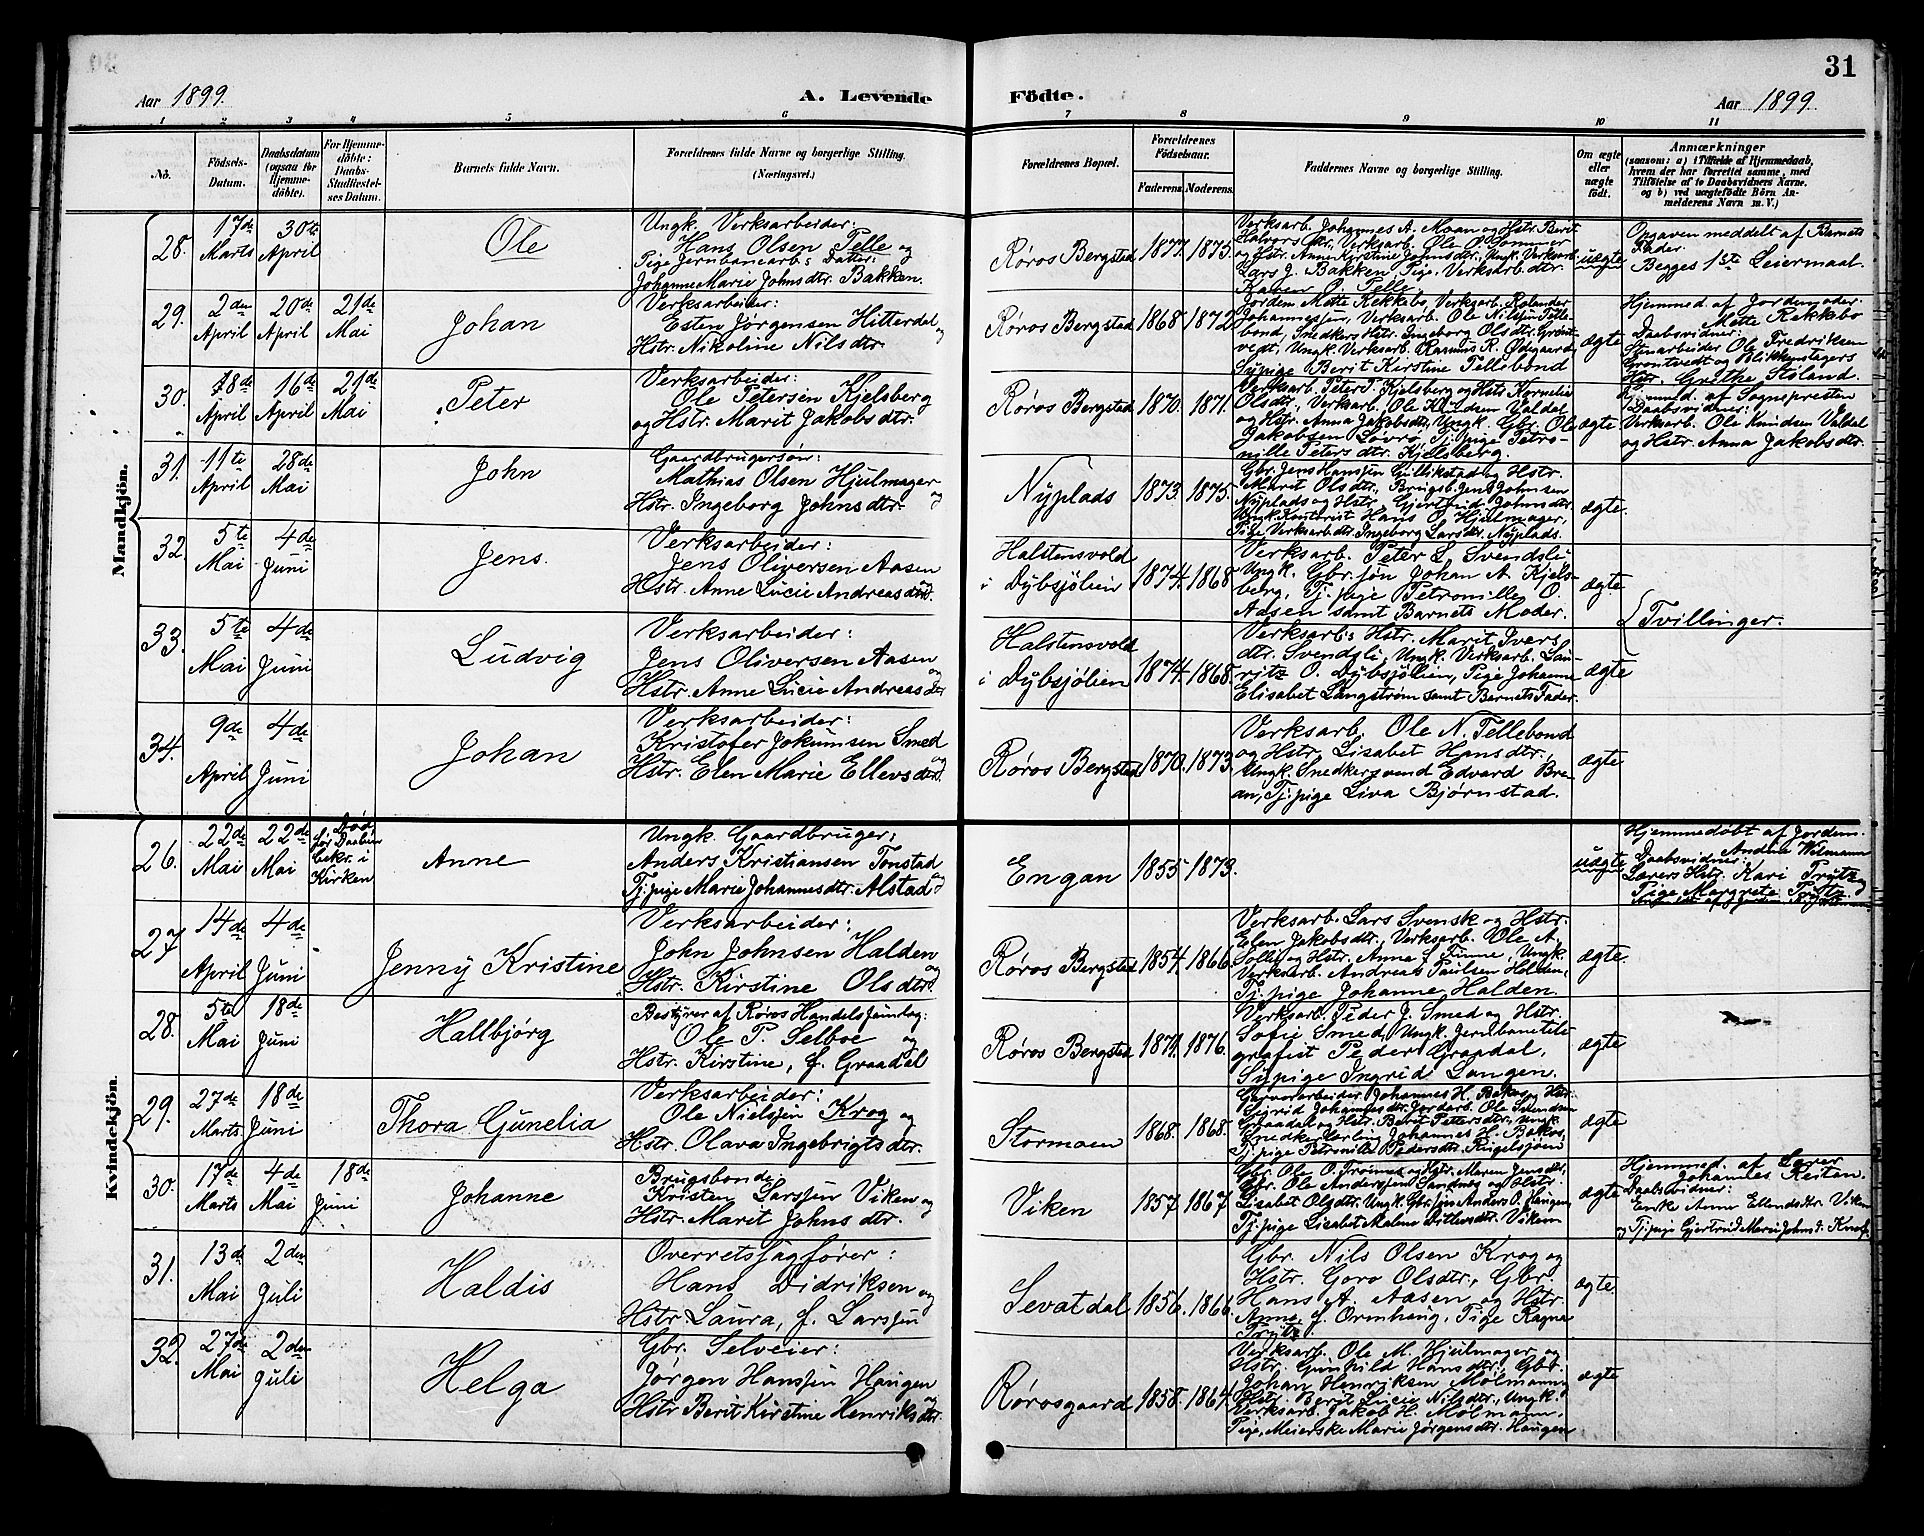 31
Aar 1899.
A. Levende
Födte.
Aar 1899.
1 2 3 4 5 6 7 8 9 10 11
No.
Födsels-
Datum.
Daabsdatum
(ogsaa for
Hjemme-
döbte).
For Hjemme-
döbte:
Daabs-
Stadfæstel-
ses Datum.
Barnets fulde Navn.
Forældrenes fulde Navne og borgerlige Stilling.
(Næringsvei.)
Forældrenes Bopæl.
Forældrenes
Födselsaar.
Faderens.
Moderens.
Faddernes Navne og borgerlige Stilling.
Om ægte
eller
uægte
födt.
Anmærkninger
(saasom: a) i Tilfælde af Hjemmedaab,
hvem der har forrettet samme, med
Tilföielse af to Daabsvidners Navne,
og b) ved uægtefödte Börn An-
melderens Navn m. V.)
Mandkjön.
28. 17de Marts 30te April
Ole
Ungk. Verksarbeider:
Hans Olsen Telle og
Pige Jernbanearb: Datter:
Johanne Marie Johnsdtr. Bakken.
Røros Bergstad 1877. 1875.
Verksarb. Johannes A. Moan og Hstr. Berit
Halvorsdtr., Verksarb. Ole O. Sommer
og Hstr. Anne Kjirstine Johnsdtr., Ungk. Verksarb.
Lars J. Bakken, Pige, Verksarb.dtr.
Karen O. Telle.
uægte
Opgaven meddelt af Barnets
Fader.
Begges 1ste Leiermaal.
29. 2den April 20de April 21de Mai
Johan
Verksarbeider:
Esten Jørgensen Hitterdal og
Hstr. Nikoline Nilsdtr.
Røros Bergstad 1868 1872
Jordem. Mette Rekkebo, Verksarb. Rolander
Johannessen, Verksarb. Ole Nilsen Telle-
bond, Snedkers Hstr. Ingeborg Olsdtr. Grønt-
vedt, Ungk. Verksarb. Rasmus R. Ødegaard,
Sypige Berit Kirstine Tellebond
ægte
Hjemmed. af Jordemoder
Mette Rekkebo
Daabsvidner:
Stenarbeider Ole Fredriksen
Grøntvedt og Blikkenslagers
Hstr. Grethe Støland.
30. 18de April 16de April 21de Mai
Peter
Verksarbeider:
Ole Petersen Kjelsberg
og Hstr. Marit Jakobsdtr.
Røros Bergstad 1870. 1871.
Verksarb. Peter J. Kjelsberg og Hstr. Kornelia
Olsdtr., Verksarb. Ole Knudsen Valdal
og Hstr. Anna Jakobsdtr., Ungk. Gbr. Ole
Jakobsen Lovro, Tj.pige Petro-
nille Petersdtr. Kjelsberg.
ægte
Hjemmed. af Sognepresten
Daabsvidner:
Verksarb. Ole Knudsen Valdal
og Hstr. Anna Jakobsdtr.
31. 11te April 28de Mai
John
Gaardbrugersøn:
Mathias Olsen Hjulmager og
Hstr. Ingeborg Johnsdtr.
Nyplads 1873. 1875.
Gbr. Jens Hansen Gullikstad og Hstr.
Marit Olsdtr., Brugsb. Jens Johnsen
Nyplads og Hstr. Gjertrud Johnsdtr.
Ungk. Kontorist Hans O. Hjulmager,
Pige Verksarb.dtr. Ingeborg Larsdtr. Nyplads.
ægte.
32. 5te Mai 4de Juni
Jens.
Verksarbeider:
Jens Oliversen Aasen og
Hstr. Anne Lucie Andreasdtr.
Halstensvold
i Dybsjølien 1874. 1868
Verksarb. Peter L. Svendsli
Ungk. Gbr.søn Johan A. Kjels-
berg, Tj.pige Petronille O.
Aasen samt Barnets Moder.
ægte
33. 5te Mai 4de Juni
Ludvig
Verksarbeider:
Jens Oliversen Aasen og
Hstr. Anne Lucie Andreasdtr.
Halstensvold
i Dybsjølien 1874. 1868.
Verksarb: Hstr. Marit Ivers-
dtr. Svendsli, Ungk. Verksarb. Lau-
ritz O. Dybsjølien, Pige Johanne
Elisabet Langstrøm samt Barnets Fader.
ægte
Tvillinger.
34. 9de April 4de Juni
Johan
Verksarbeider:
Kristofer Jokumsen Smed og
Hstr. Elen Marie Ellevsdtr.
Røros Bergstad 1870. 1873.
Verksarb. Ole N. Tellebond
og Hstr. Lisabet Hansdtr.
Ungk. Snedkersvend Edvard Bre-
an, Tj.pige Liva Bjørnstad.
ægte
Kvindekjön.
26. 22de Mai 22de Mai
Død,
før Daaben
bekr. i
Kirken
Anne
Ungk. Gaardbruger:
Anders Kristiansen Tonstad og
Tj.pige Marie Johannesdtr. Alstad
Engan 1855 1873.
uægte
Hjemmedøbt af Jordem.
Andrea Wilmann
Daabsvidner:
Lærers Hstr. Kari Trytz og
Pige Margrete Trytz
27. 14de April 4de Juni
Jenny Kristine
Verksarbeider:
John Johnsen Halden og
Hstr. Kirstine Olsdtr.
Røros Bergstad 1854. 1866.
Verksarb. Lars Svensk og Hstr.
Elen Jakobsdtr., Verksarb. Ole A.
Solli og Hstr. Anna f. Finne, Ungk.
Verksarb. Andreas Paulsen Halden,
Tj.pige Johanne Halden.
ægte.
28. 5te Mai 18de Juni
Hallbjørg
Bestyrer af Røros Handelsforening:
Ole P. Selboe og
Hstr. Kirstine, f. Graadal
Røros Bergstad 1874. 1876.
Verksarb. Peder J. Smed og Hstr.
Sofie Smed, Ungk. Jernbanetele-
grafist Peder Graadal,
Sypige Ingrid Langen.
ægte
29. 27de Marts 18de Juni
Thora Gunelia
Verksarbeider:
Ole Nielsen Krog og
Hstr. Olava Ingebrigtsdtr.
Stormoen 1868. 1868.
Garverarbeider Johannes H. Bakos og Hstr.
Sigrid Johannesdtr., Jordarb. Ole Svendsen
Graadal og Hstr. Berit Pettersdtr., Ungk.
Snedkerlærling Johannes H. Bakos,
Tj.pige Petronille Pedersdtr. Rugelsjøen
ægte
30. 17de Marts 4de Mai 18de Juni
Johanne
Brugsbonde
Kristen Larssen Viken og
Hstr. Marit Johnsdtr.
Viken 1857. 1867.
Gbr. Ole O. Trønnes og Hstr. Maren Jensdtr.,
Gbr. Ole Anderssen Sandnes og Hstr.
Lisabet Olsdtr., Ungk. Gbr.søn Anders O. Haugen,
Tj.pige Lisabet Malene Ditlevsdtr. Viken
ægte
Hjemmed. af Lærer
Johannes Reitan.
Daabsvidner:
Enke Anne Ellendsdtr. Viken
og Tj.pige Gjertrud Marie Johnsd. Knof.
31. 13de Mai 2den Juli
Haldis
Overretssagfører:
Hans Didriksen og
Hstr. Laura, f. Larssen
Sevatdal 1856. 1866.
Gbr. Nils Olsen Krog og
Hstr. Goro Olsdtr., Gbr.
Hans A. Aasen og Hstr.
Anna f. Ormhaug, Pige Ragna
Trytz.
ægte
32. 27de Mai 2den Juli
Helga
Gbr. Selveier:
Jørgen Hanssen Haugen og
Hstr. Berit Kirstine Henriksdtr.
Rørosgaard 1858. 1864.
Verksarb. Ole M. Hjulmager og
Hstr. Gunhild Hansdtr., Gbr.
Johan Henriksen Mølmann og
Hstr. Berit Lucie Nilsdtr., Ungk.
Verksarb. Jakob H. Mølmann,
Pige, Meierske Marie Jørgensdtr. Haugen
ægte